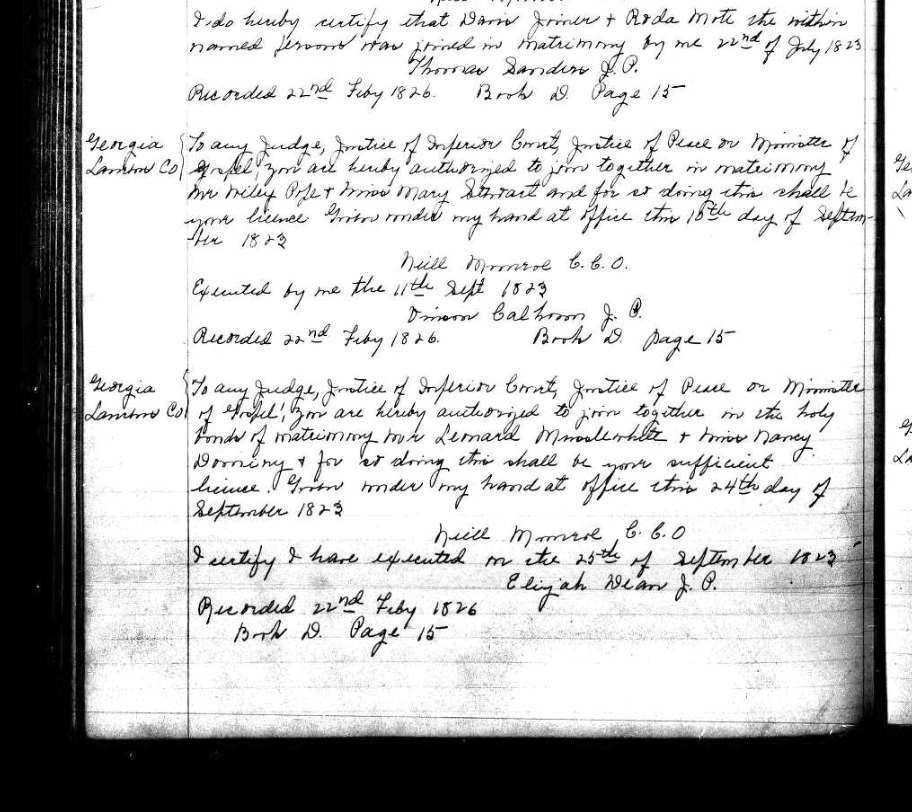 I do hereby certify that Davis Joiner + Roda Mote the within
named persons was joined in matrimony by me 22nd of July 1823
Thomas Sanders J.P.
Recorded 22nd Feby 1826. Book D. Page 15
Georgia To any Judge, Justice of Inferior Court, Justice of Peace or Minister of
Laurens Co Gospel; you are hereby authorized to join together in matrimony
Mr Wiley Pope + Miss Mary Stewart and for so doing this shall be
your licence Given under my hand at office this day of Septem-
ber 1823
Neill Munroe C.C.O.
Executed by me the 11th Sept 1823
Calhoun J. P.
Recorded 22nd Feby 1826. Book D. page 15
Georgia To any Judge, Justice of Inferior Court, Justice of Peace or Minister
Laurens Co of Gospel; you are hereby authorized to join together in the holy
bonds of matrimony Mr Lenard + Miss Nancy
+ for so doing this shall be your sufficient
licence. Given under my hand at office this 24th day of
September 1823
Neill Munroe C.C.O
I certify I have executed on the 25th of September 1823
Elijah Dean J. P.
Recorded 22nd Feby 1826
Book D. Page 15